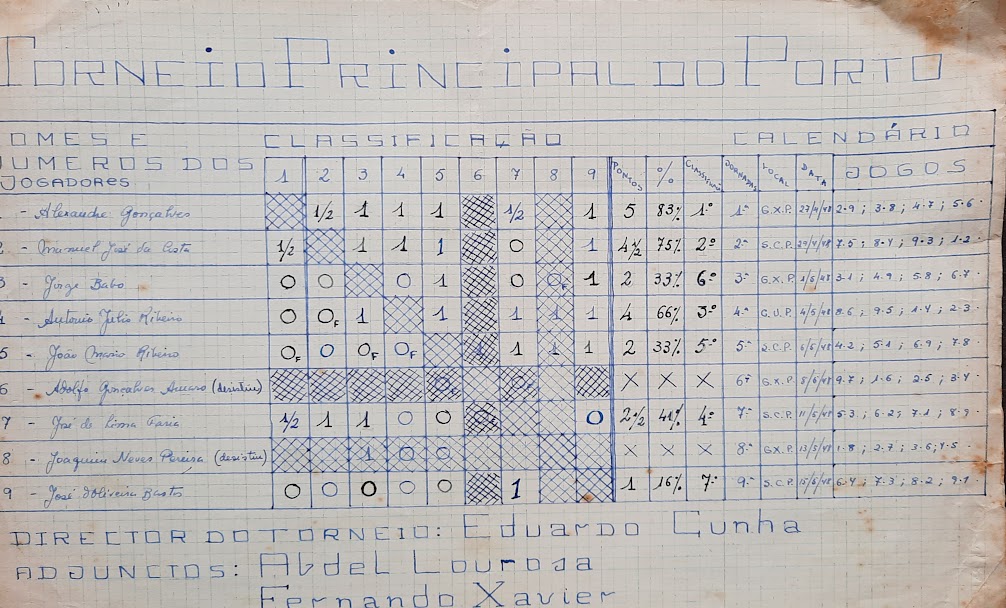 TORNEIO PRINCIPAL DO PORTO
OMES E CLASSIFICAÇÃO CALENDÁRIO
NUMEROS DOS
JOGADORES 1 2 3 4 5 6 7 8 9 PONTOS % CLASSIFICAÇÃO JORNADAS LOCAL DATA JOGOS
- Alexandre Gonçalves 1/2 1 1 1 1/2 1 5 83% 1º 1ª G.X.P. 27/4/48 2-9; 3-8; 4-7; 5-6
2 - Manuel José da Costa 1/2 1 1 1 0 1 4 1/2 75% 2º 2ª S.C.P. 29/4/48 7-5; 8-4; 9-3; 1-2
3 - Jorge Babo 0 0 0 1 0 0F 1 2 33% 6º 3ª G.X.P. 1/5/48 3-1; 4-9; 5-8; 6-7
4 - António Julio Ribeiro 0 0F 1 1 1 1 1 4 66% 3º 4ª G.U.P. 4/5/48 8-6; 9-5; 1-4; 2-3
5 - João Mario Ribeiro 0F 0 0F 0F 1 1 1 1 2 33% 5º 5ª S.C.P. 6/5/48 4-2; 5-1; 6-9; 7-8
6 - Adolfo Gonçalves Amaro (desistiu) X X X 6ª G.X.P. 8/5/48 9-7; 1-6; 2-5; 3-4
7 - José de Lima Faria 1/2 1 1 0 0 0 2 1/2 41% 4º 7ª S.C.P. 11/5/48 5-3; 6-2; 7-1; 8-9
8 - Joaquim Neves Pereira (desistiu) 1 0 0 X X X 8ª G.X.P. 13/5/48 1-8; 2-7; 3-6; 4-5
9 - José d'Oliveira Bastos 0 0 0 0 0 1 1 16% 7º 9ª S.C.P. 15/5/48 6-4; 7-3; 8-2; 9-1
DIRECTOR DO TORNEIO: Eduardo Cunha
ADJUNCTOS: Abdel Lourosa
Fernando Xavier